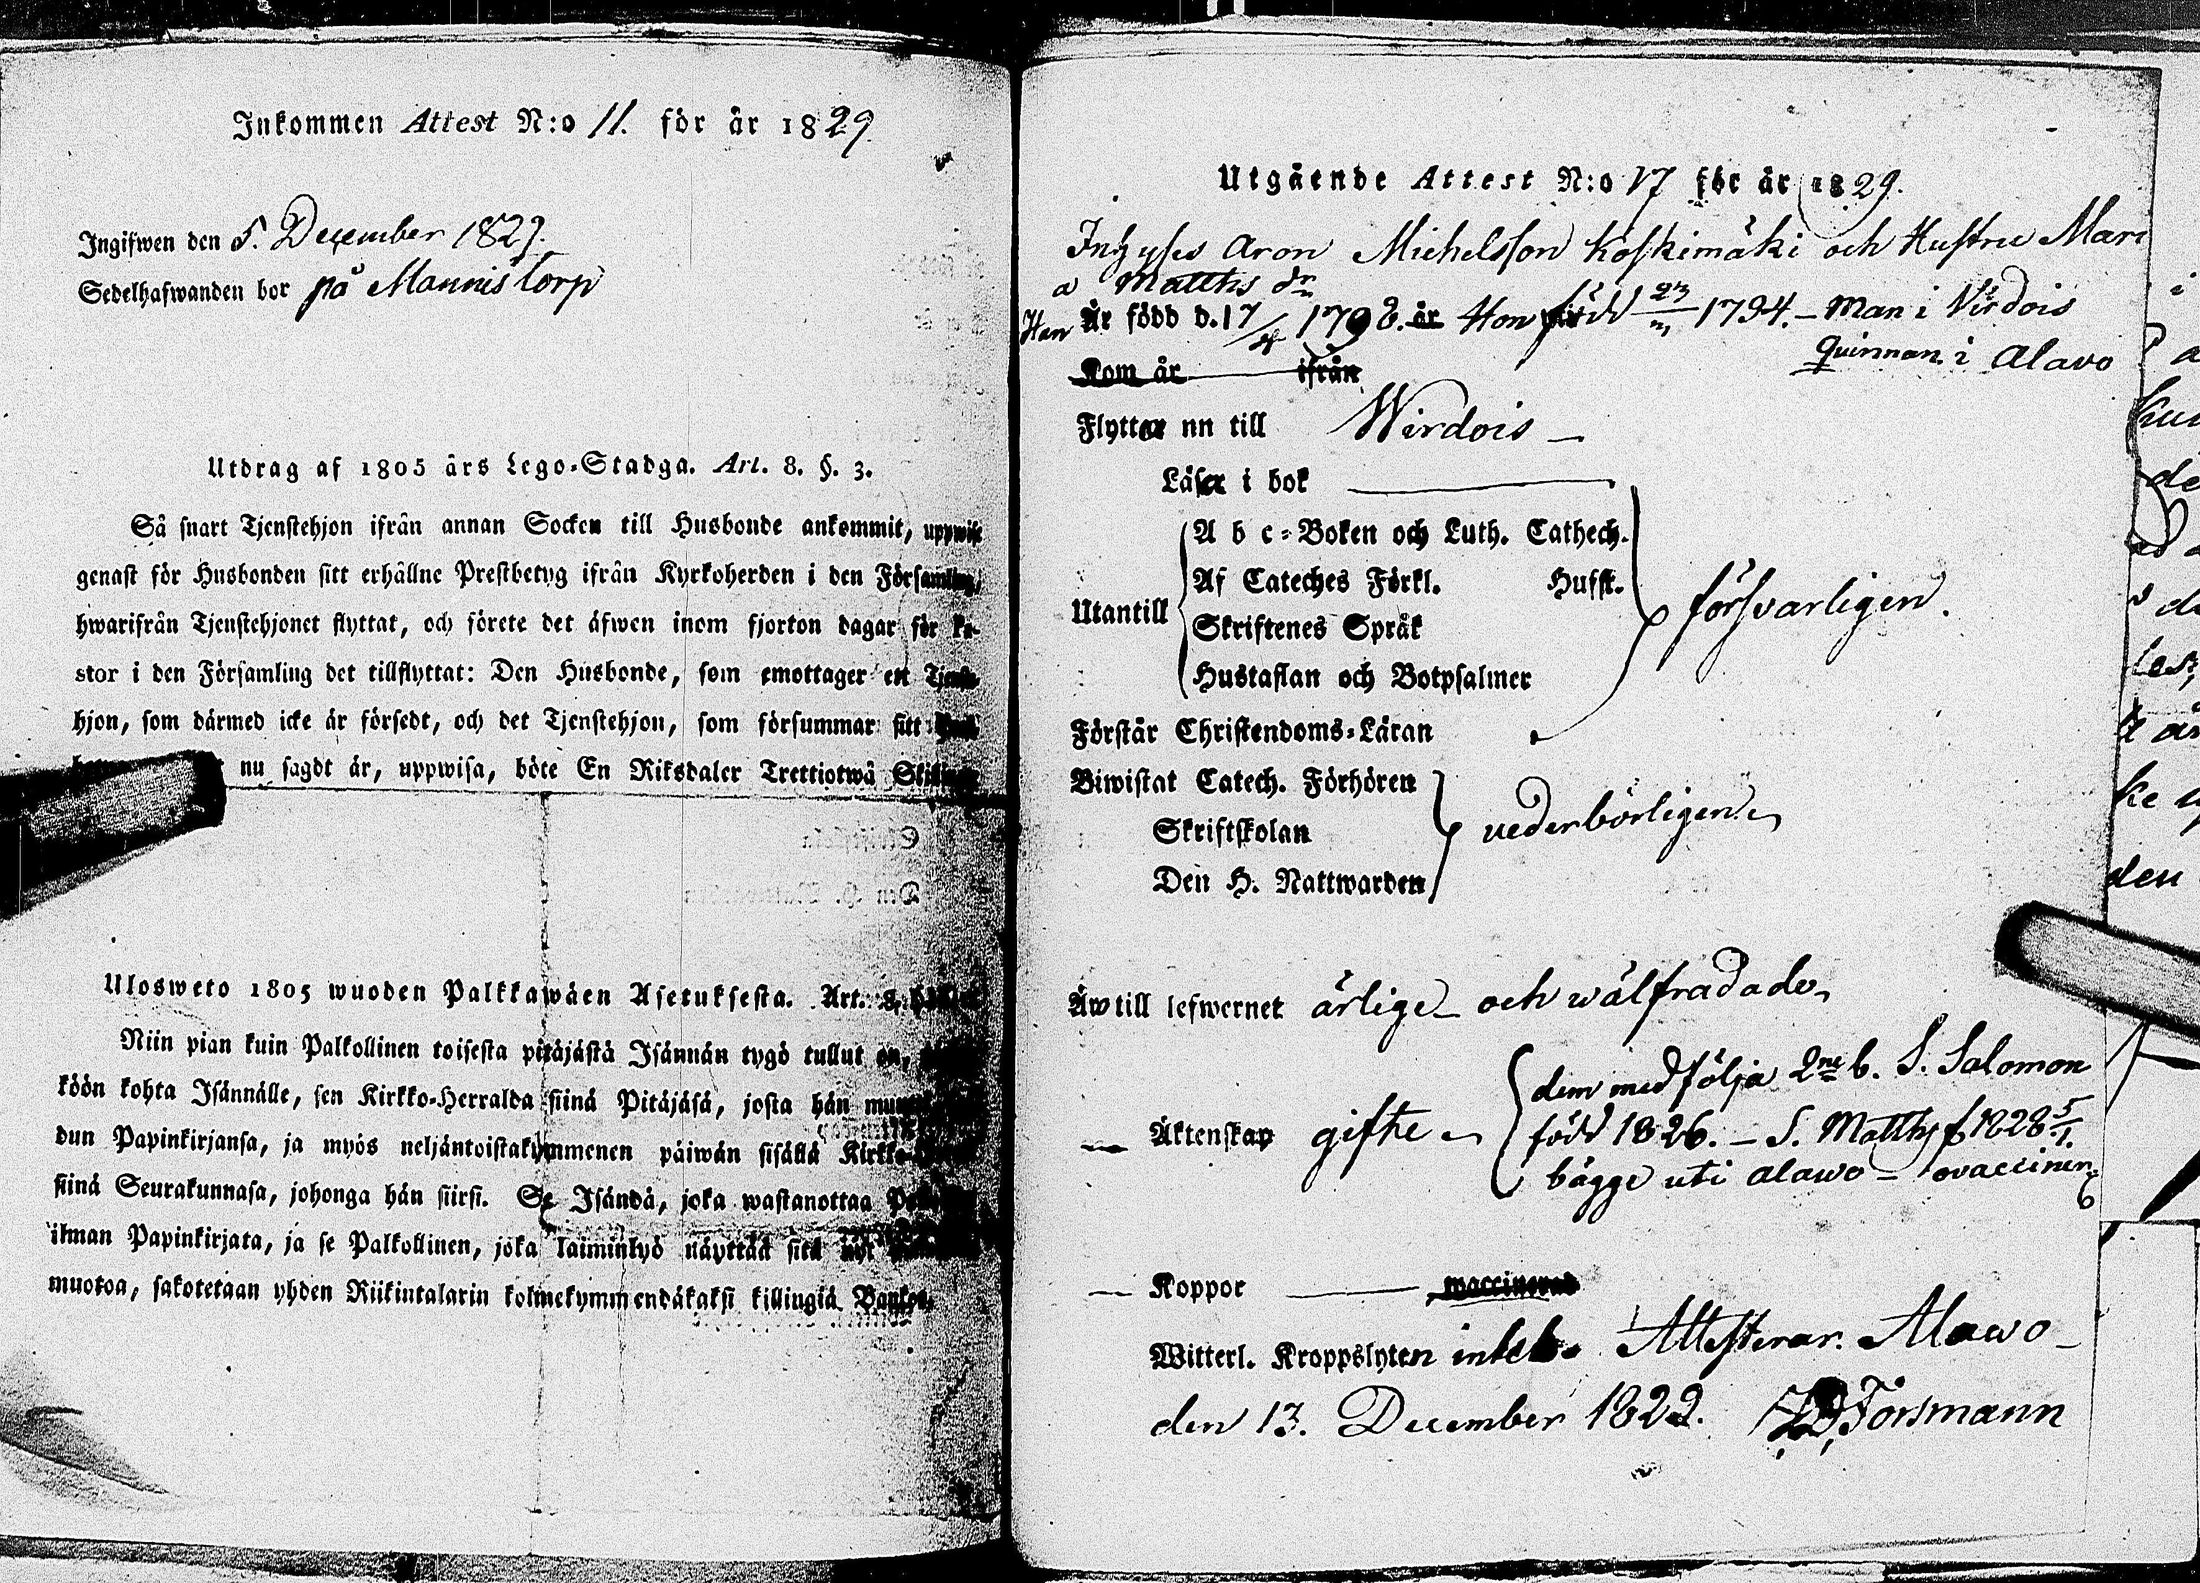 Inkommen Attest N:o 11. för år 1829.
Ingifwen den 5. December 1829.
Sedelhafwanden bor på Mannis torp
Utdrag af 1805 års Lego-Stadga. Art. 8. §. 3.
Så snart Tjenstehjon ifrån annan Socken till Husbonde ankommit, uppwise
genast för Husbonden sitt erhållne Prestbetyg ifrån Kyrkoherden i den Församling,
hwarifrån Tjenstehjonet flyttat, och förete det äfwen inom fjorton dagar för
stor i den Församling det tillflyttat: Den Husbonde, som emottager ett
hjon, som därmed icke är försedt, och det Tjenstehjon, som försummar sitt
nu sagdt är, uppwisa, böte En Riksdaler Trettiotwå
Ulosweto 1805 wuoden Palkkawäen Asetuksesta. Art. 8.
Niin pian kuin Palkollinen toisesta pitäjästä Isännän tygö tullut on,
köön kohta Isännälle, sen Kirkko-Herralda siinä Pitäjäsä, josta hän
dun Papinkirjansa, ja myös neljäntoistakymmenen päiwän sisällä
siinä Seurakunnasa, johonga hän siirsi. Se Isändä, joka wastanottaa
ilman Papinkirjata, ja se Palkollinen, joka laiminlyö näyttää sitä nyt
muotoa, sakotetaan yhden Riikintalarin kolmekymmendäkaksi killingiä Bankos.
Utgående Attest N:o 17 för år 1829.
Inhyses Aron Michelsson Koskimäki och Hustru Mari
a Matths dr
Han Är född d. 17/4 1798. är Hon född 1794. – Man i Virdois
Quinnan i Alavo
Kom år ifrån
Flytta nu till Wirdois –
Läsa i bok
A b c-Boken och Luth. Cathech.
Af Cateches Förkl. Hufst.
Utantill
Skriftenes Språk
försvarligen.
Hustaflan och Botpsalmer
Förstår Christendoms-Läran
Biwistat Catech. Förhören
Skriftskolan
vederbörligen
Den H. Nattwarden
Äro till lefwernet ärlige och wälfrädade
dem medfölja 2ne b. S. Salomon
– Äktenskap gifte
född 1826. – S. Matths f. 1828 5/1.
bägge uti Alawo –
– Koppor waccinerad
Witterl. Kroppslyten Attesterar. Alawo –
den 13. December 1829. Forsmann